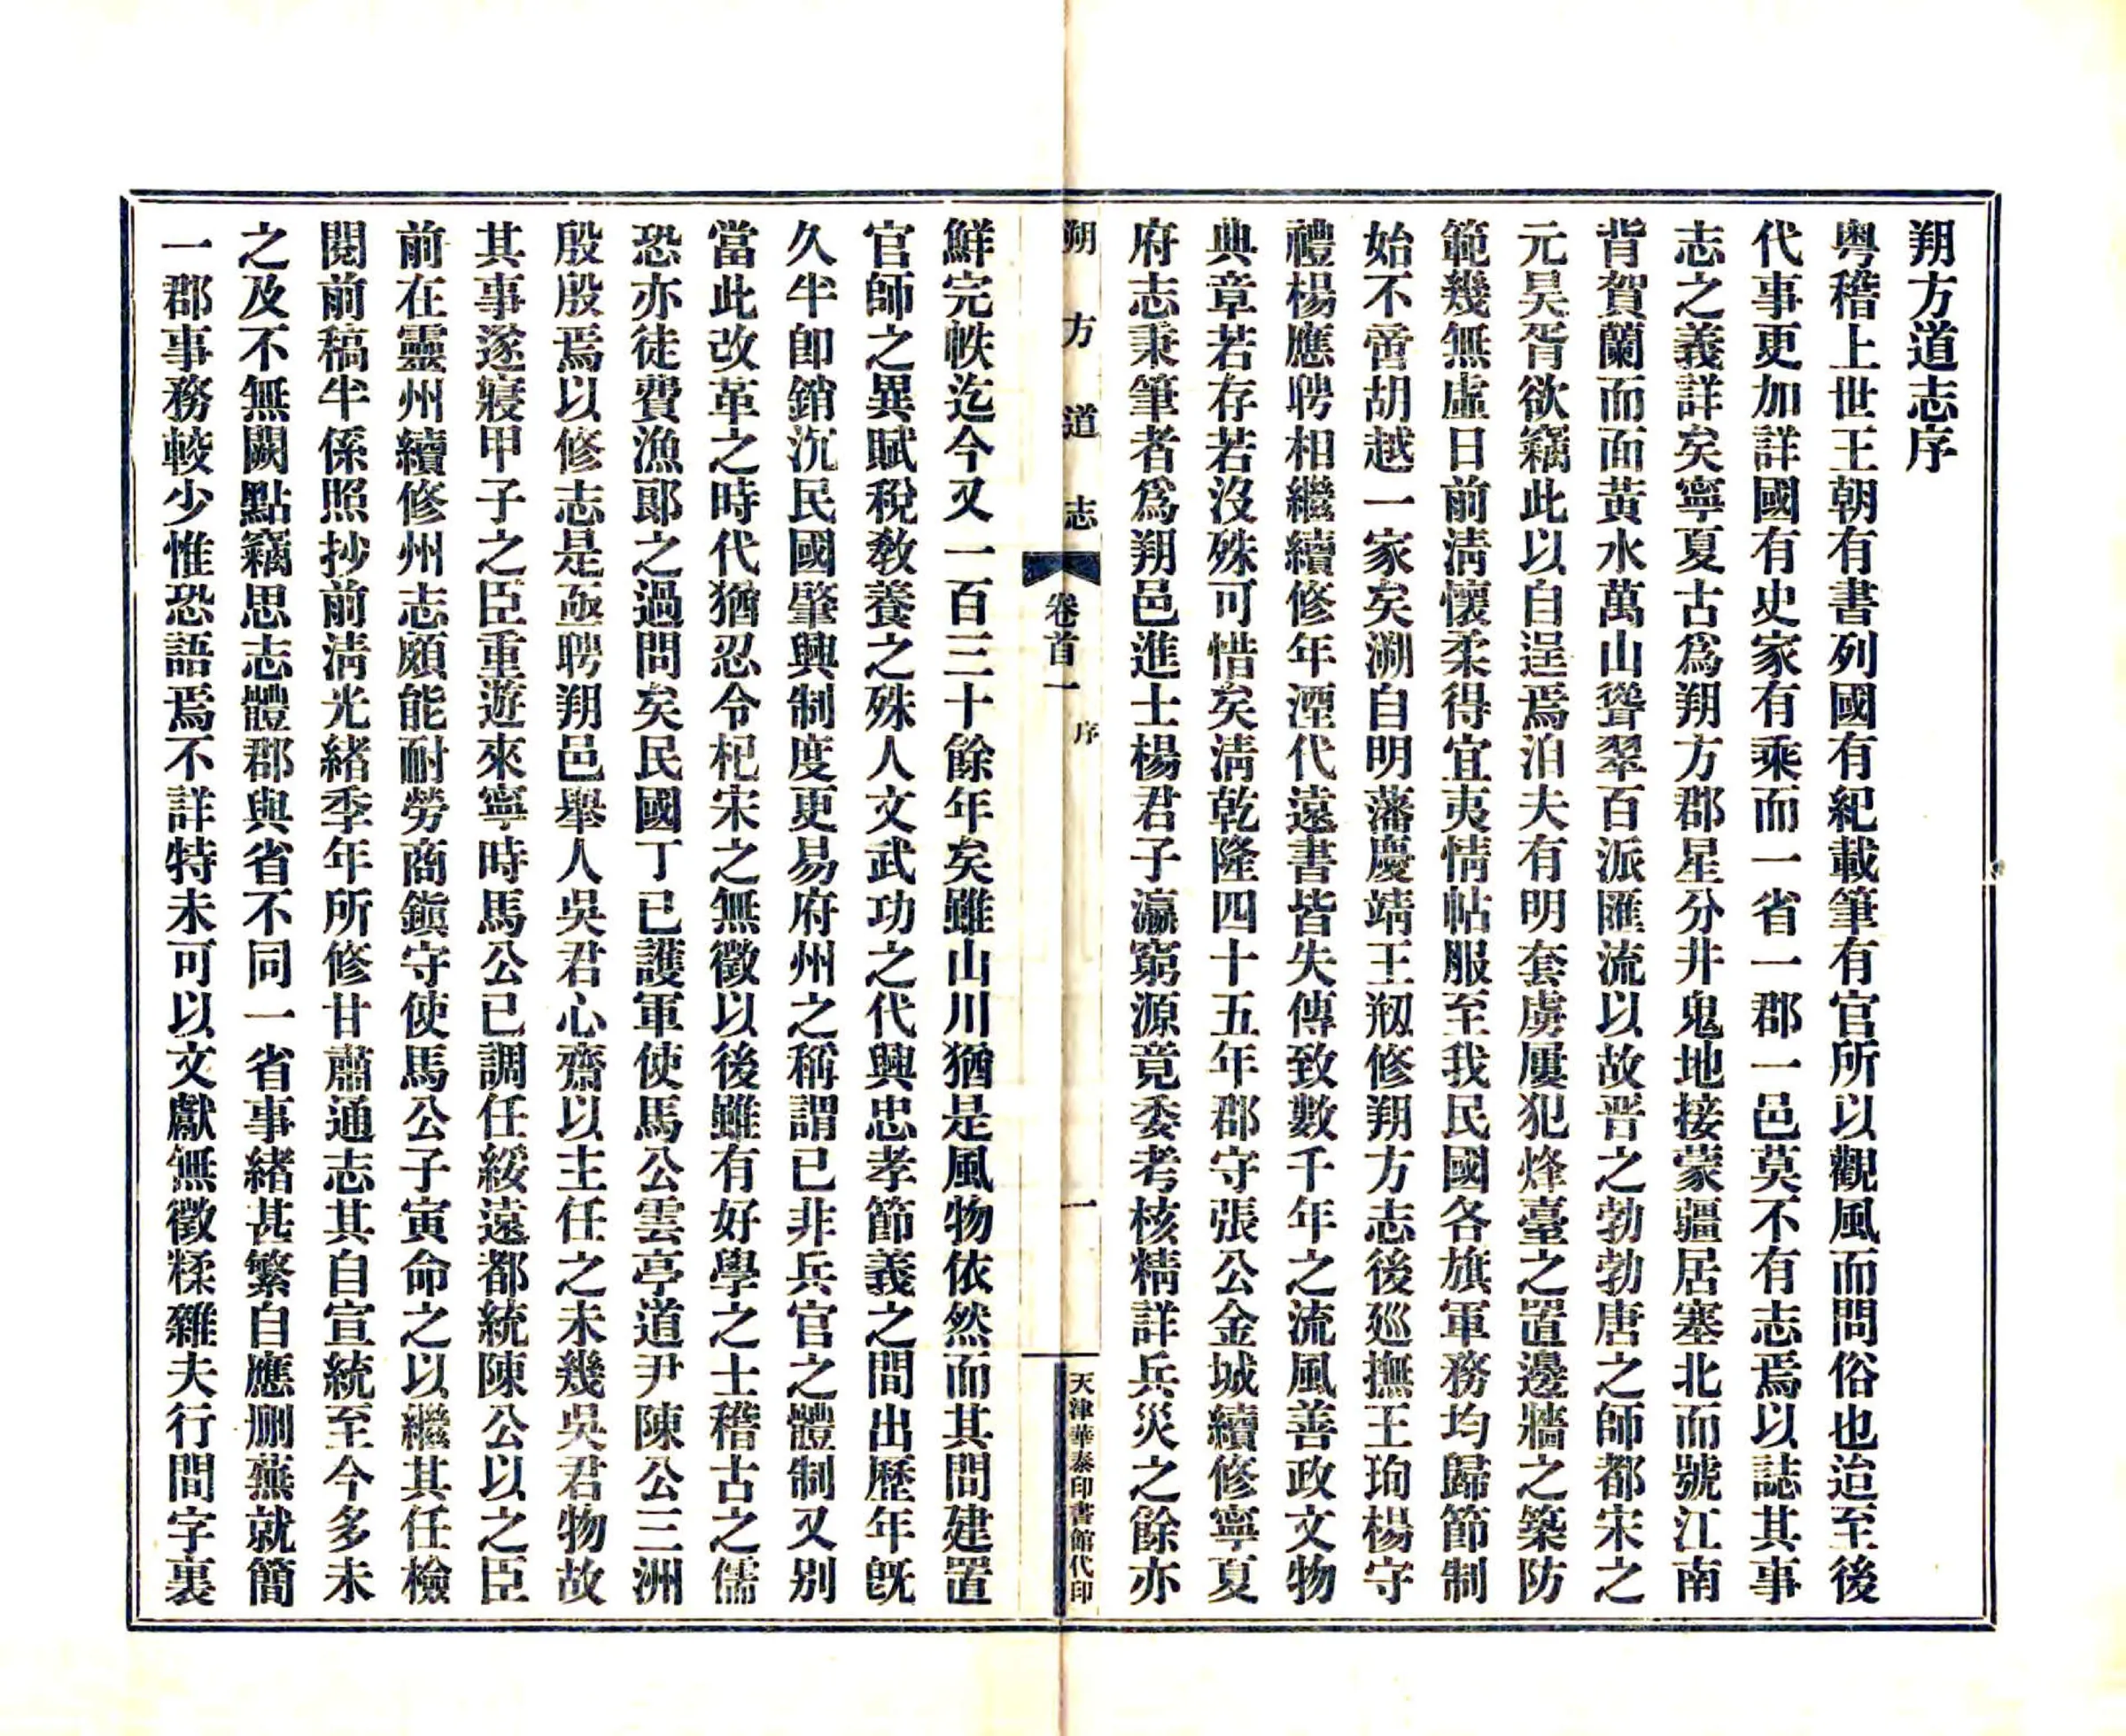 朔方道志序
粵稽上世王朝有書列國有紀載筆有官所以觀風而問俗也迨至後
代事更加詳國有史家有乘而一省一郡一邑莫不有志焉以誌其事
志之義詳矣寧夏古爲朔方郡星分井鬼地接蒙疆居塞北而號江南
背賀蘭而面黃水萬山聳翠百派匯流以故晋之勃勃唐之師都宋之
元昊胥欲竊此以自逞焉洎夫有明套虜屢犯烽臺之置邊牆之築防
範幾無虛日前淸懷柔得宜夷情帖服至我民國各旗軍務均歸節制
始不啻胡越一家矣溯自明藩慶靖王剏修朔方志後廵撫王珣楊守
禮楊應聘相繼續修年湮代遠書皆失傳致數千年之流風善政文物
典章若存若沒殊可惜矣淸乾隆四十五年郡守張公金城續修寧夏
府志秉筆者爲朔邑進士楊君子瀛窮源竟委考核精詳兵災之餘亦
朔方道志
卷首一
序
一
天津華泰印書館代印
鮮完帙迄今又一百三十餘年矣雖山川猶是風物依然而其間建置
官師之異賦稅敎養之殊人文武功之代興忠孝節義之間出歷年旣
久半卽銷沉民國肇興制度更易府州之稱謂已非兵官之體制又別
當此改革之時代猶忍令杞宋之無徵以後雖有好學之士稽古之儒
恐亦徒費漁郞之過問矣民國丁巳護軍使馬公雲亭道尹陳公三洲
殷殷焉以修志是亟聘朔邑舉人吳君心齋以主任之未幾吳君物故
其事遂寢甲子之臣重遊來寧時馬公已調任綏遠都統陳公以之臣
前在靈州續修州志頗能耐勞商鎭守使馬公子寅命之以繼其任檢
閱前稿半係照抄前淸光緖季年所修甘肅通志其自宣統至今多未
之及不無闕點竊思志體郡與省不同一省事緖甚繁自應刪蕪就簡
一郡事務較少惟恐語焉不詳特未可以文獻無徵糅雜夫行間字裏